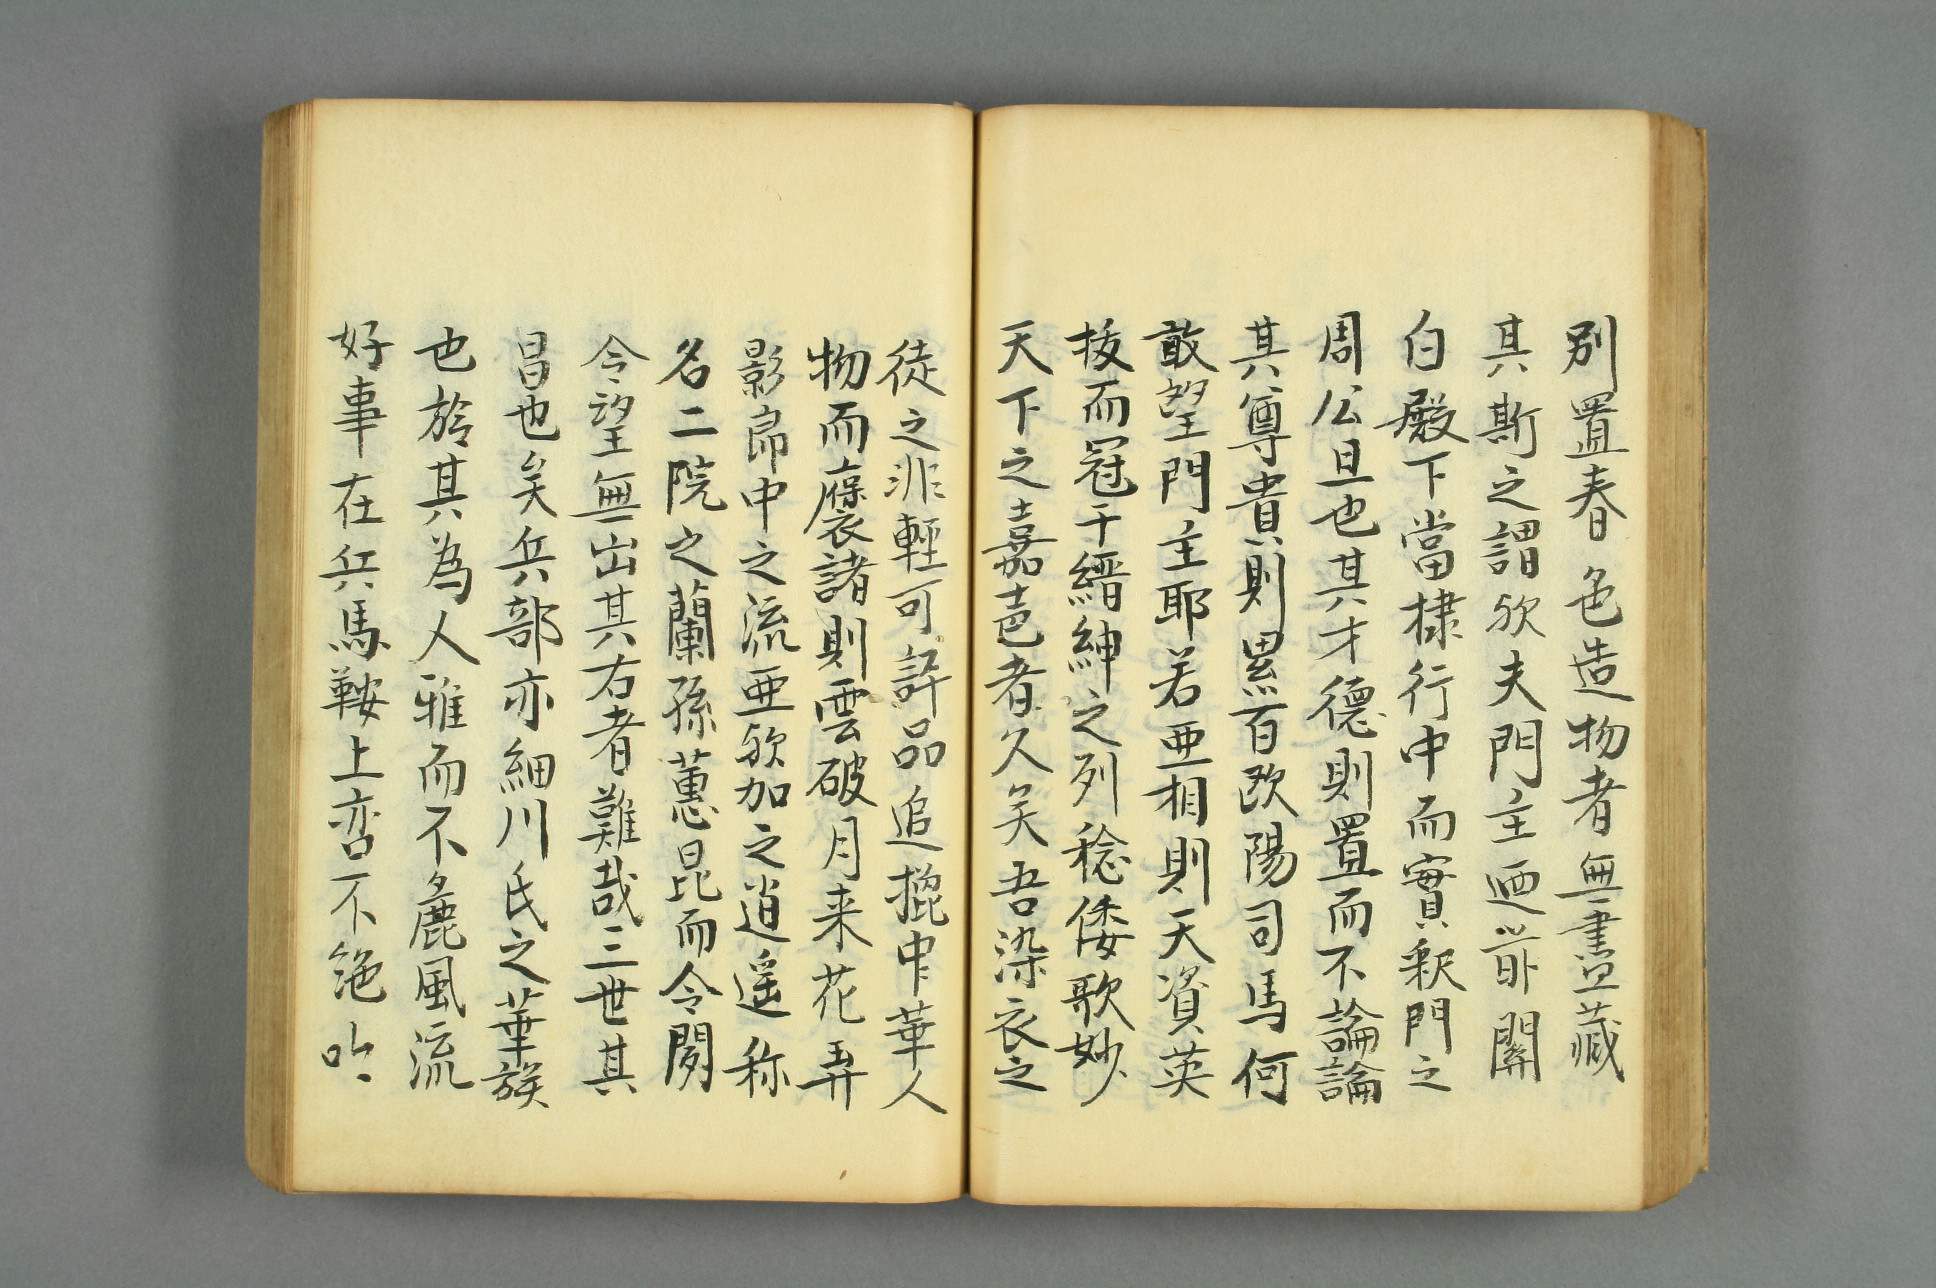 別置春色造物者無盡藏
其斯之謂歟夫門主迺前関
白殿下當棣行中而實釈門之
周公旦也其才徳則置而不論論
其尊貴則累百欧陽司馬何
敢望門主耶若亜相則天資英
抜而冠于縉紳之列稔倭歌妙
天下之嘉芭者久矣吾染衣之
徒之非輕可評品追摠中華人
物而褒諸則雲破月来花弄
影郎中之流亜歟加之逍遥称
名二院之蘭孫蕙昆而令聞
令望無出其右者難哉三世其
昌也矣兵部亦細川氏之華族
也於其為人雅而不麁風流
好事在兵馬鞍上峦不絶吟